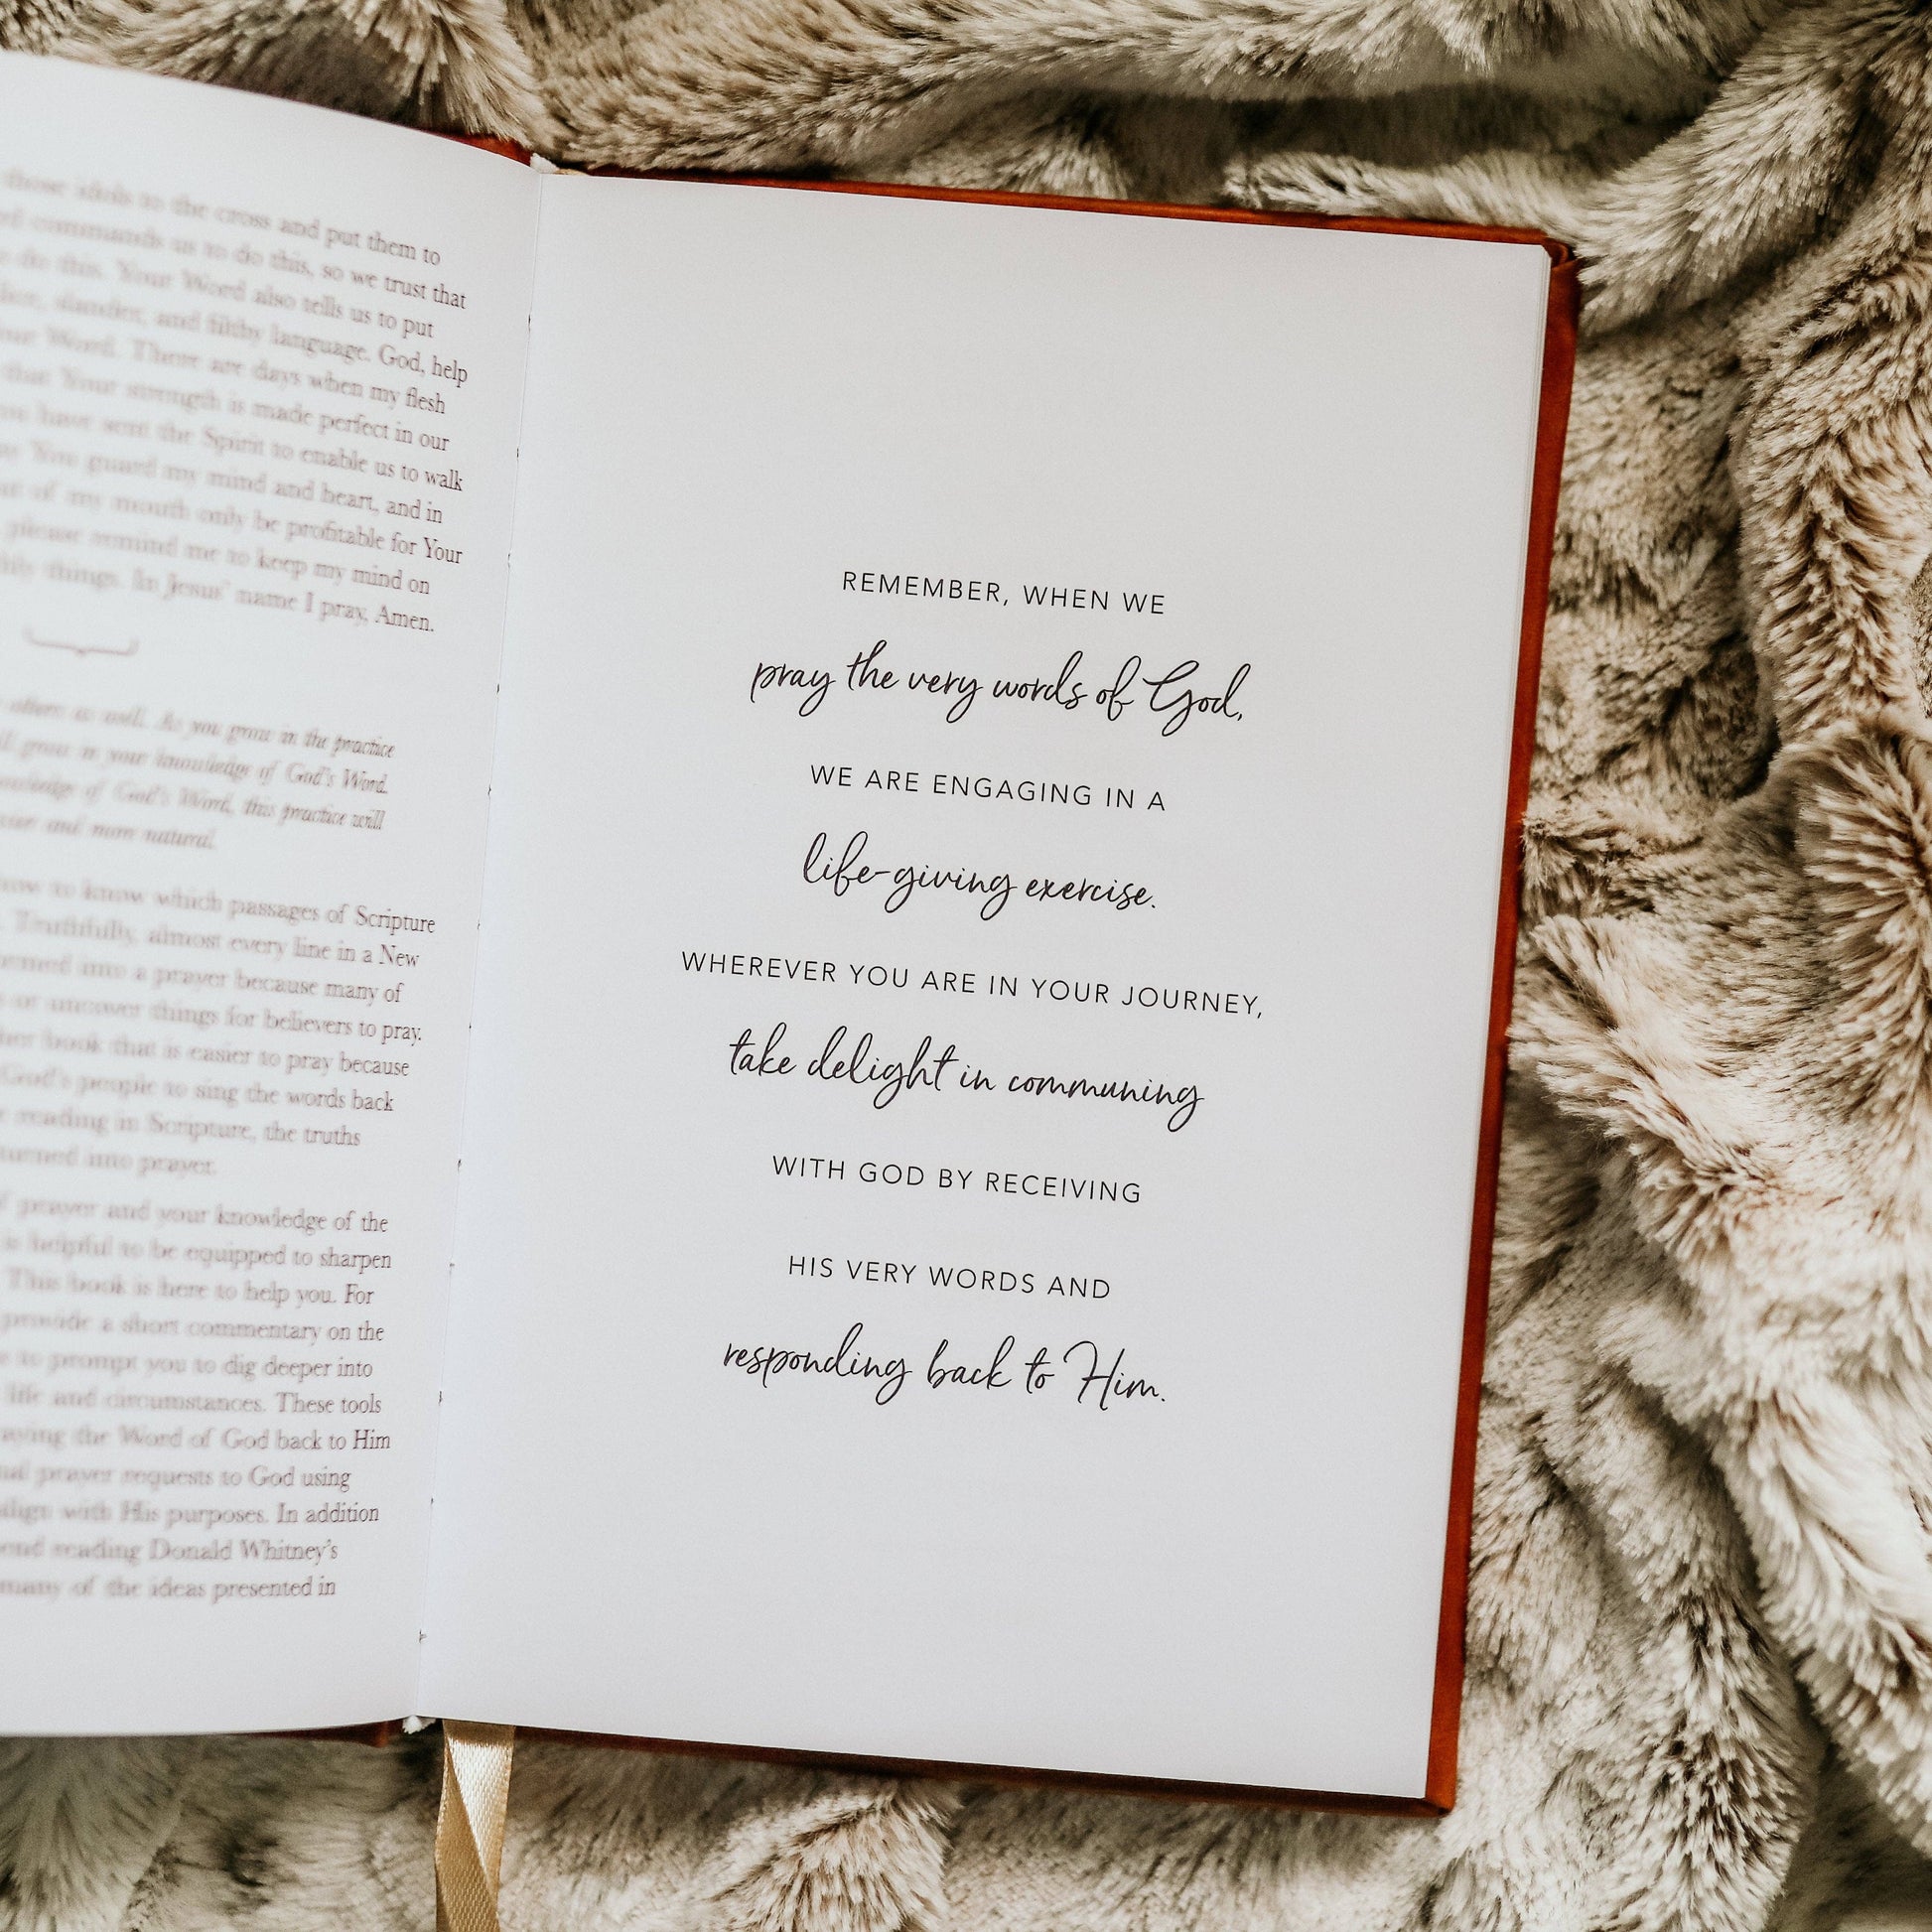 those idols to the cross and put them to
commands us to do this, so we trust that
do this. Your Word also tells us to put
slander, and filthy language. God, help
Word. There are days when my flesh
that Your strength is made perfect in our
have sent the Spirit to enable us to walk
You guard my mind and heart, and in
of my mouth only be profitable for Your
please remind me to keep my mind on
things. In Jesus' name I pray, Amen.
others as well. As you grow in the practice
grow in your knowledge of God's Word.
of God's Word, this practice will
and more natural.
to know which passages of Scripture
Truthfully, almost every line in a New
turned into a prayer because many of
or uncover things for believers to pray.
book that is easier to pray because
God's people to sing the words back
reading in Scripture, the truths
turned into prayer.
prayer and your knowledge of the
is helpful to be equipped to sharpen
This book is here to help you. For
provide a short commentary on the
to prompt you to dig deeper into
life and circumstances. These tools
praying the Word of God back to Him
prayer requests to God using
align with His purposes. In addition
reading Donald Whitney's
many of the ideas presented in
REMEMBER, WHEN WE
pray the very words of God,
WE ARE ENGAGING IN A
life-giving exercise.
WHEREVER YOU ARE IN YOUR JOURNEY,
take delight in communing
WITH GOD BY RECEIVING
HIS VERY WORDS AND
responding back to Him.